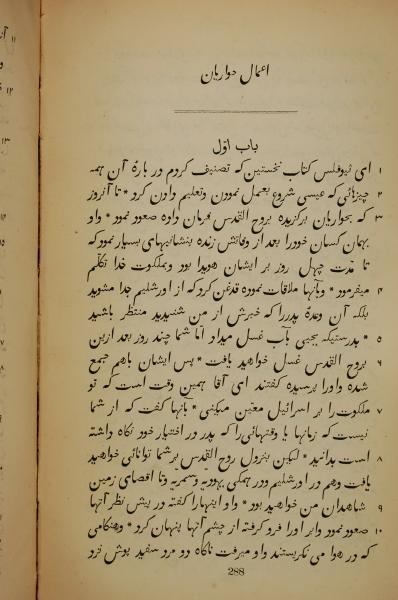 اعمال حواریان
باب اوّل
۱ ای ثیوفلس کتاب نخستین که تصنیف کردم در بارهٔ آن همه
۲ چیزهائی که عیسی شروع بعمل نمودن وتعلیم دادن کرد * تا آنروز
۳ که بحواریان برگزیده بروح القدس فرمان داده صعود نمود * واو
بهمان کسان خودرا بعد از وفاتش زنده بنشانیهای بسیار نمود که
تا مدّت چهل روز بر ایشان هویدا بود وبملکوت خدا تکلّم
۴ میفرمود * وبآنها ملاقات نموده قدغن کرد که از اورشلیم جدا مشوید
بلکه آن وعدهٔ پدررا که خبرش از من شنیدید منتظر باشید
۵ * بدرستیکه یحیی بآب غسل میداد امّا شما چند روز بعد ازین
۶ بروح القدس غسل خواهید یافت * پس ایشان باهم جمع
شده واورا پرسیده گفتند ای آقا همین وقت است که تو
۷ ملکوت را بر اسرائیل معیّن میکنی * بآنها گفت که از شما
نیست که زمانها یا وقتهائی را که پدر در اختیار خود نگاه داشته
۸ است بدانید * لیکن بنزول روح القدس بر شما توانائی خواهید
یافت وهم در اورشلیم ودر همگی یهودیه وسمریه وتا اقصای زمین
۹ شاهدان من خواهید بود * واو اینهارا گفته در پیش نظر آنها
۱۰ صعود نمود وابر اورا فرو گرفته از چشم آنها پنهان کرد * وهنگامی
که در هوا می نگریستند واو میرفت ناگاه دو مرد سفید پوش نزد
288
۱۱
۱۲
۱۳